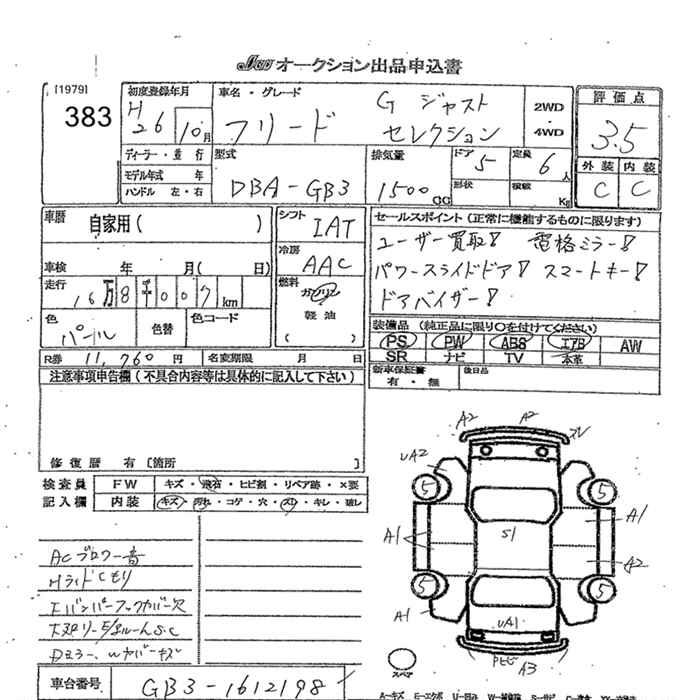 JU オークション出品申込書
[1979]
383
初度登録年月
H26 10月
車名・グレード
フリード
G ジャスト
セレクション
2WD
・
4WD
評価点
3.5
外装 内装
C C
ディーラー・並行
モデル年式 年
ハンドル 左・右
型式
DBA-GB3
排気量
1500 CC
ドア 5
形状
定員 6人
積載 Kg
車歴
自家用( )
車検 年 月( 日)
走行
16万8千007km
色
パール
色替
色コード
シフト
IAT
冷房
AAC
燃料
ガソリン
軽油
( )
セールスポイント(正常に機能するものに限ります)
ユーザー買取! 電格ミラー!
パワースライドドア! スマートキー!
ドアバイザー!
装備品(純正品に限り○を付けてください)
PS PW ABS エアB AW
SR ナビ TV 本革
新車保証書
有・無
後日品
R券 11,760円 名変期限 月 日
注意事項申告欄(不具合内容等は具体的に記入して下さい)
修復歴 有 〔箇所 〕
検査員
記入欄
FW キズ・飛石・ヒビ割・リペア跡・×要
内装 キズ・汚れ・コゲ・穴・スレ・キレ・破レ
ACブロワー音
Hライトくもり
車台番号
GB3-1612198
A2 A2
UA2
5 5
A1 S1 A1
A2
5 5
A1 UA1
A3
スペア